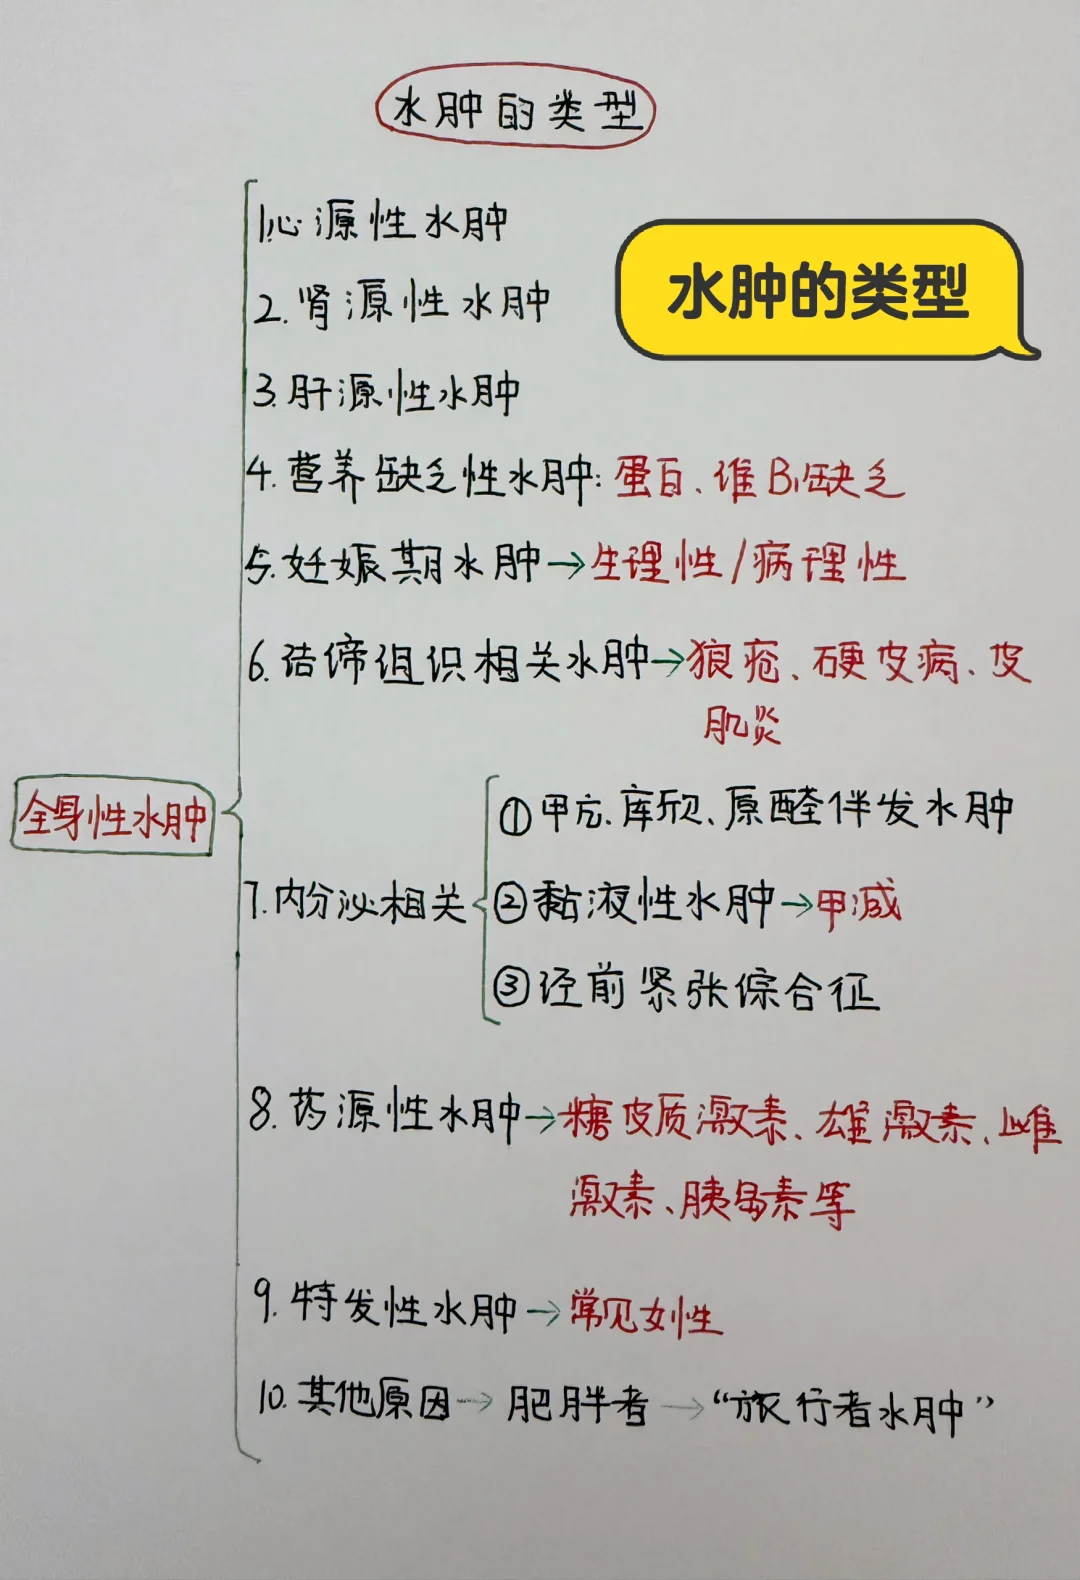 水肿的类型
水肿的类型
1.心源性水肿
2.肾源性水肿
3.肝源性水肿
4.营养缺乏性水肿:蛋白、维B₁缺乏
5.妊娠期水肿→生理性/病理性
6.结缔组织相关水肿→狼疮、硬皮病、皮
肌炎
全身性水肿
7.内分泌相关
①甲亢、库欣、原醛伴发水肿
②黏液性水肿→甲减
③经前紧张综合征
8.药源性水肿→糖皮质激素、雄激素、雌
激素、胰岛素等
9.特发性水肿→常见女性
10.其他原因→肥胖者→“旅行者水肿”